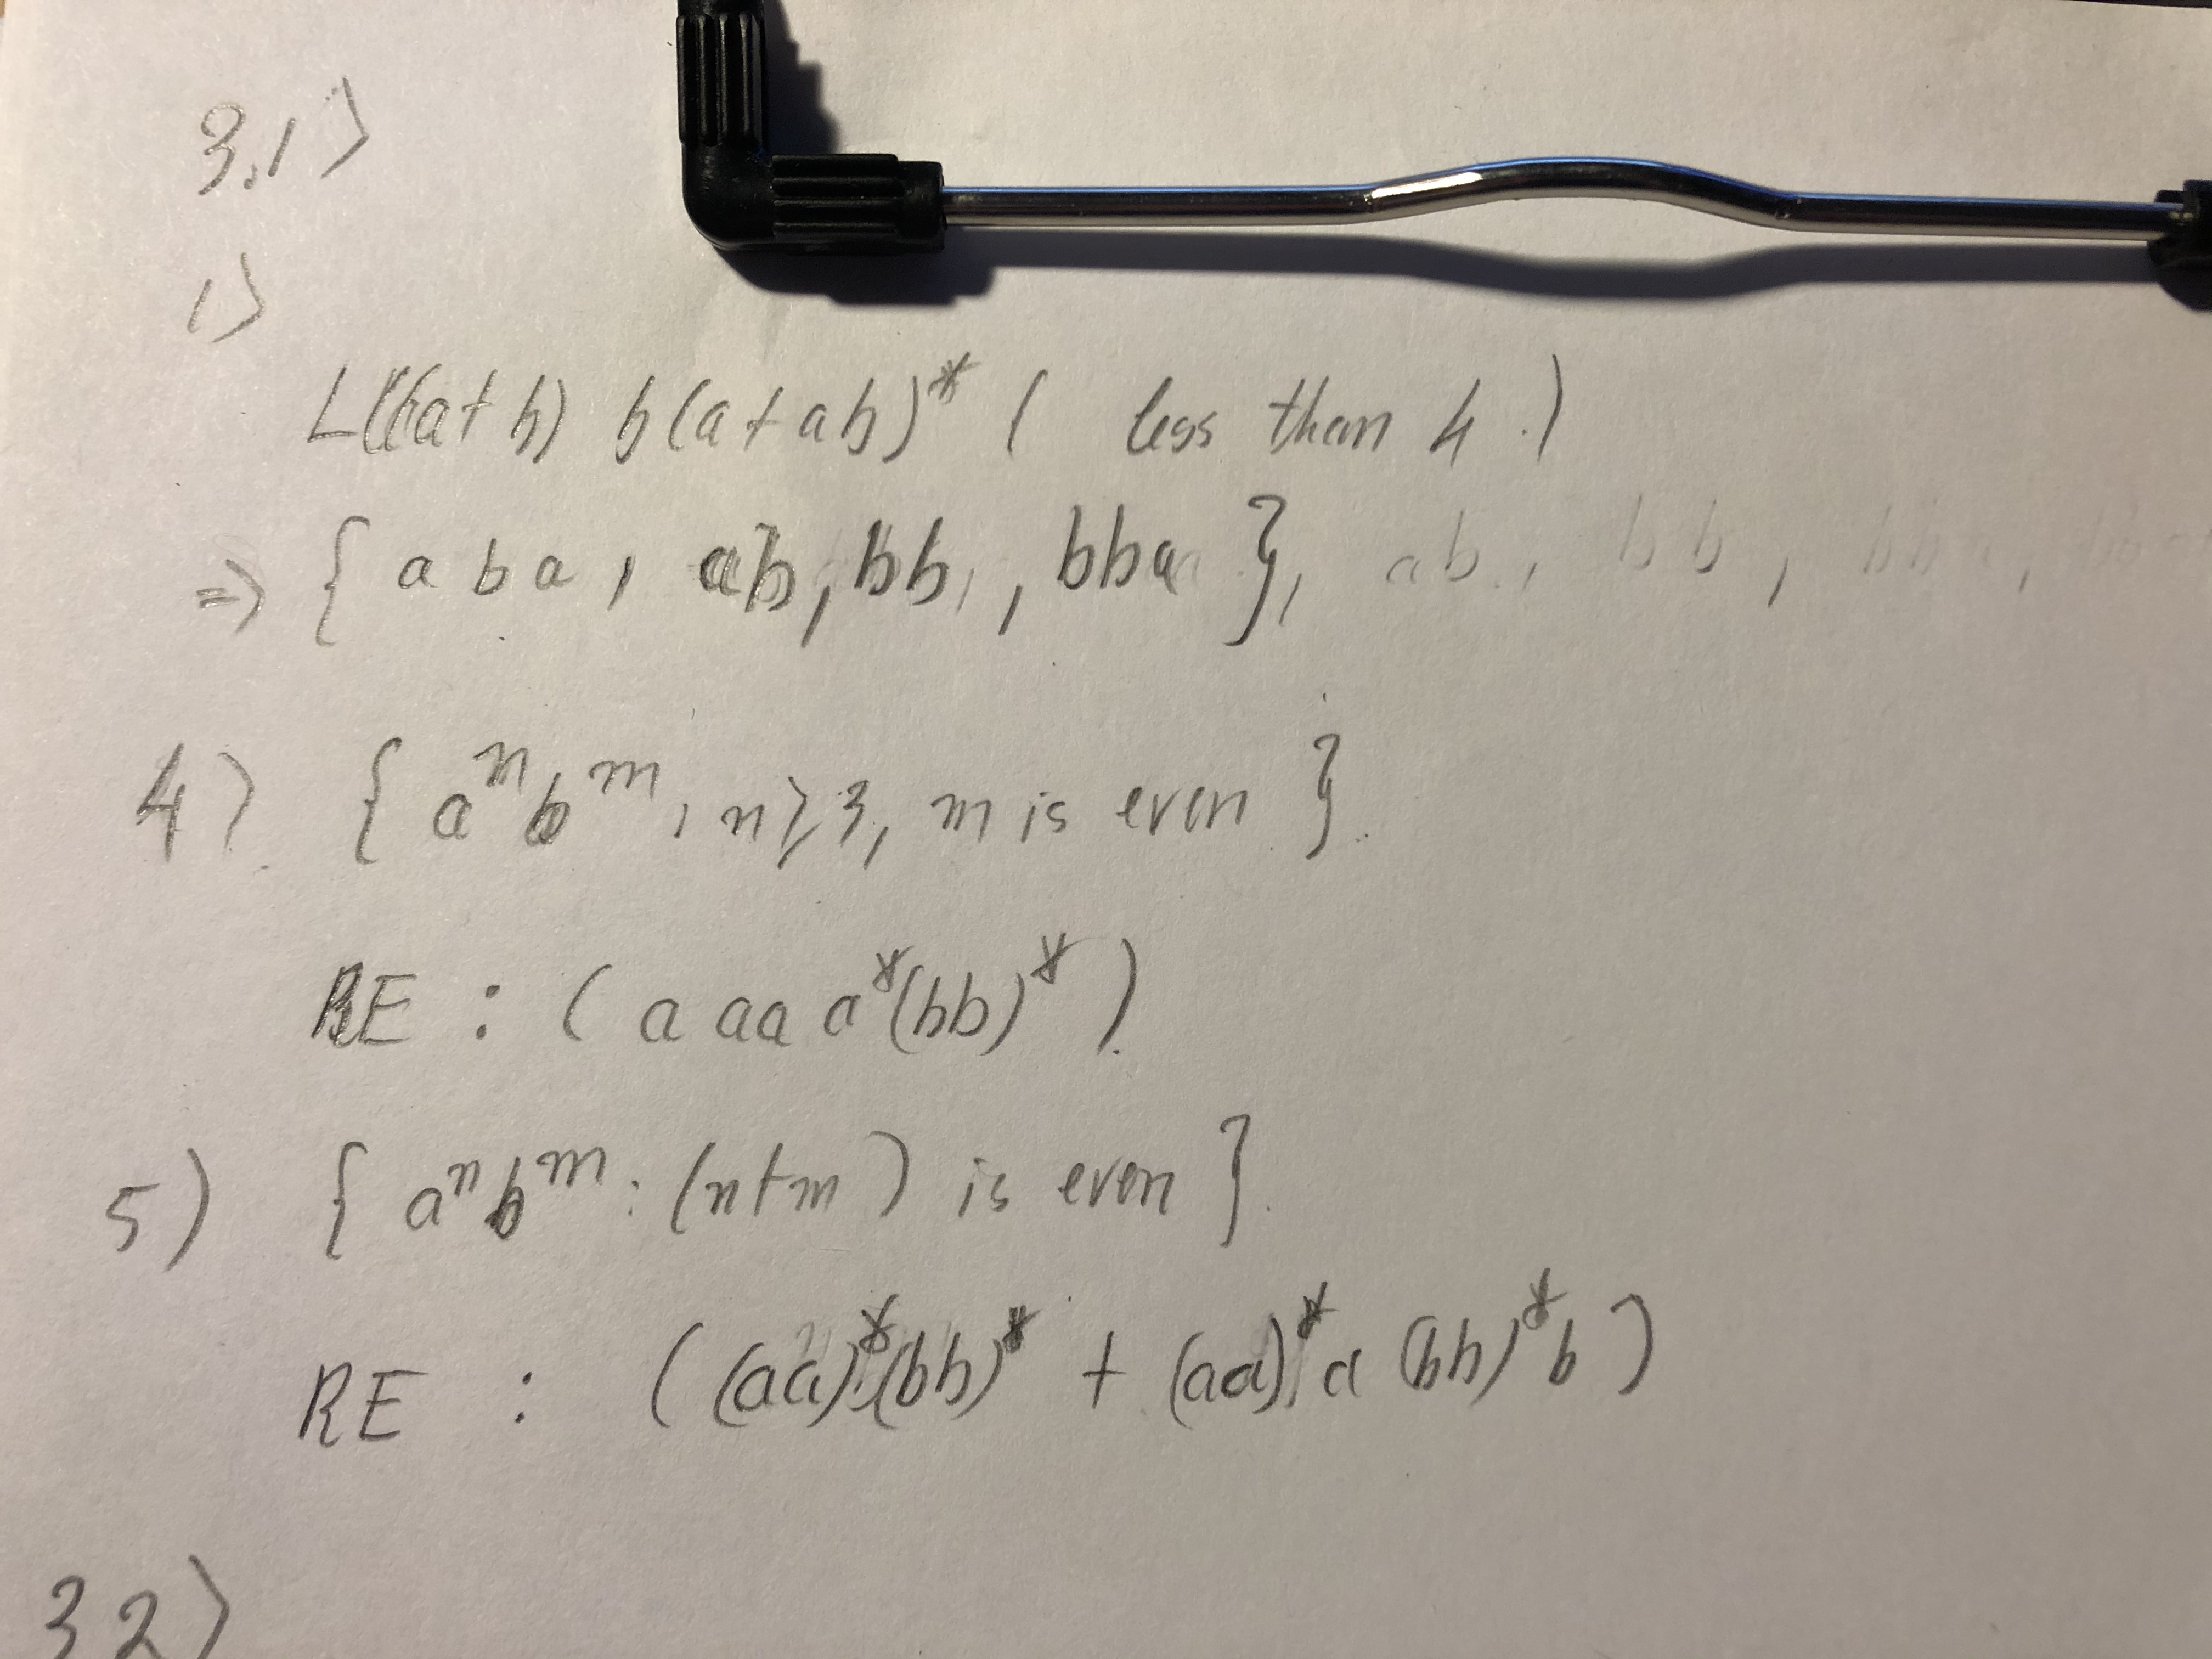 3.1>
1>
L((a+b) b(a+ab)* ( less than 4 )
=> { aba, ab, bb, , bba }, ab, bb,
4> { a^n b^m, n≥3, m is even }.
RE : ( a aa a*(bb)* )
5) { a^n b^m : (n+m) is even }
RE : ( (aa)*(bb)* + (aa)*a (bb)*b )
32>